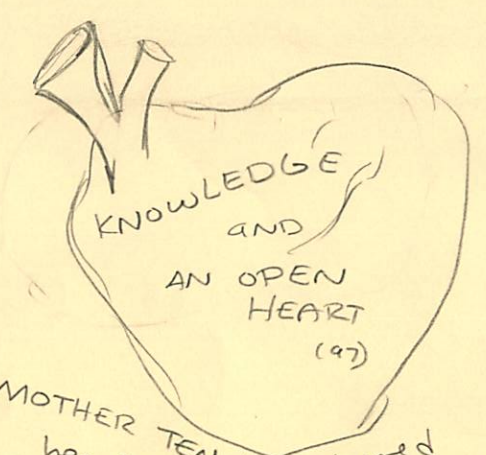 KNOWLEDGE
AND
AN OPEN
HEART
(97)
MOTHER